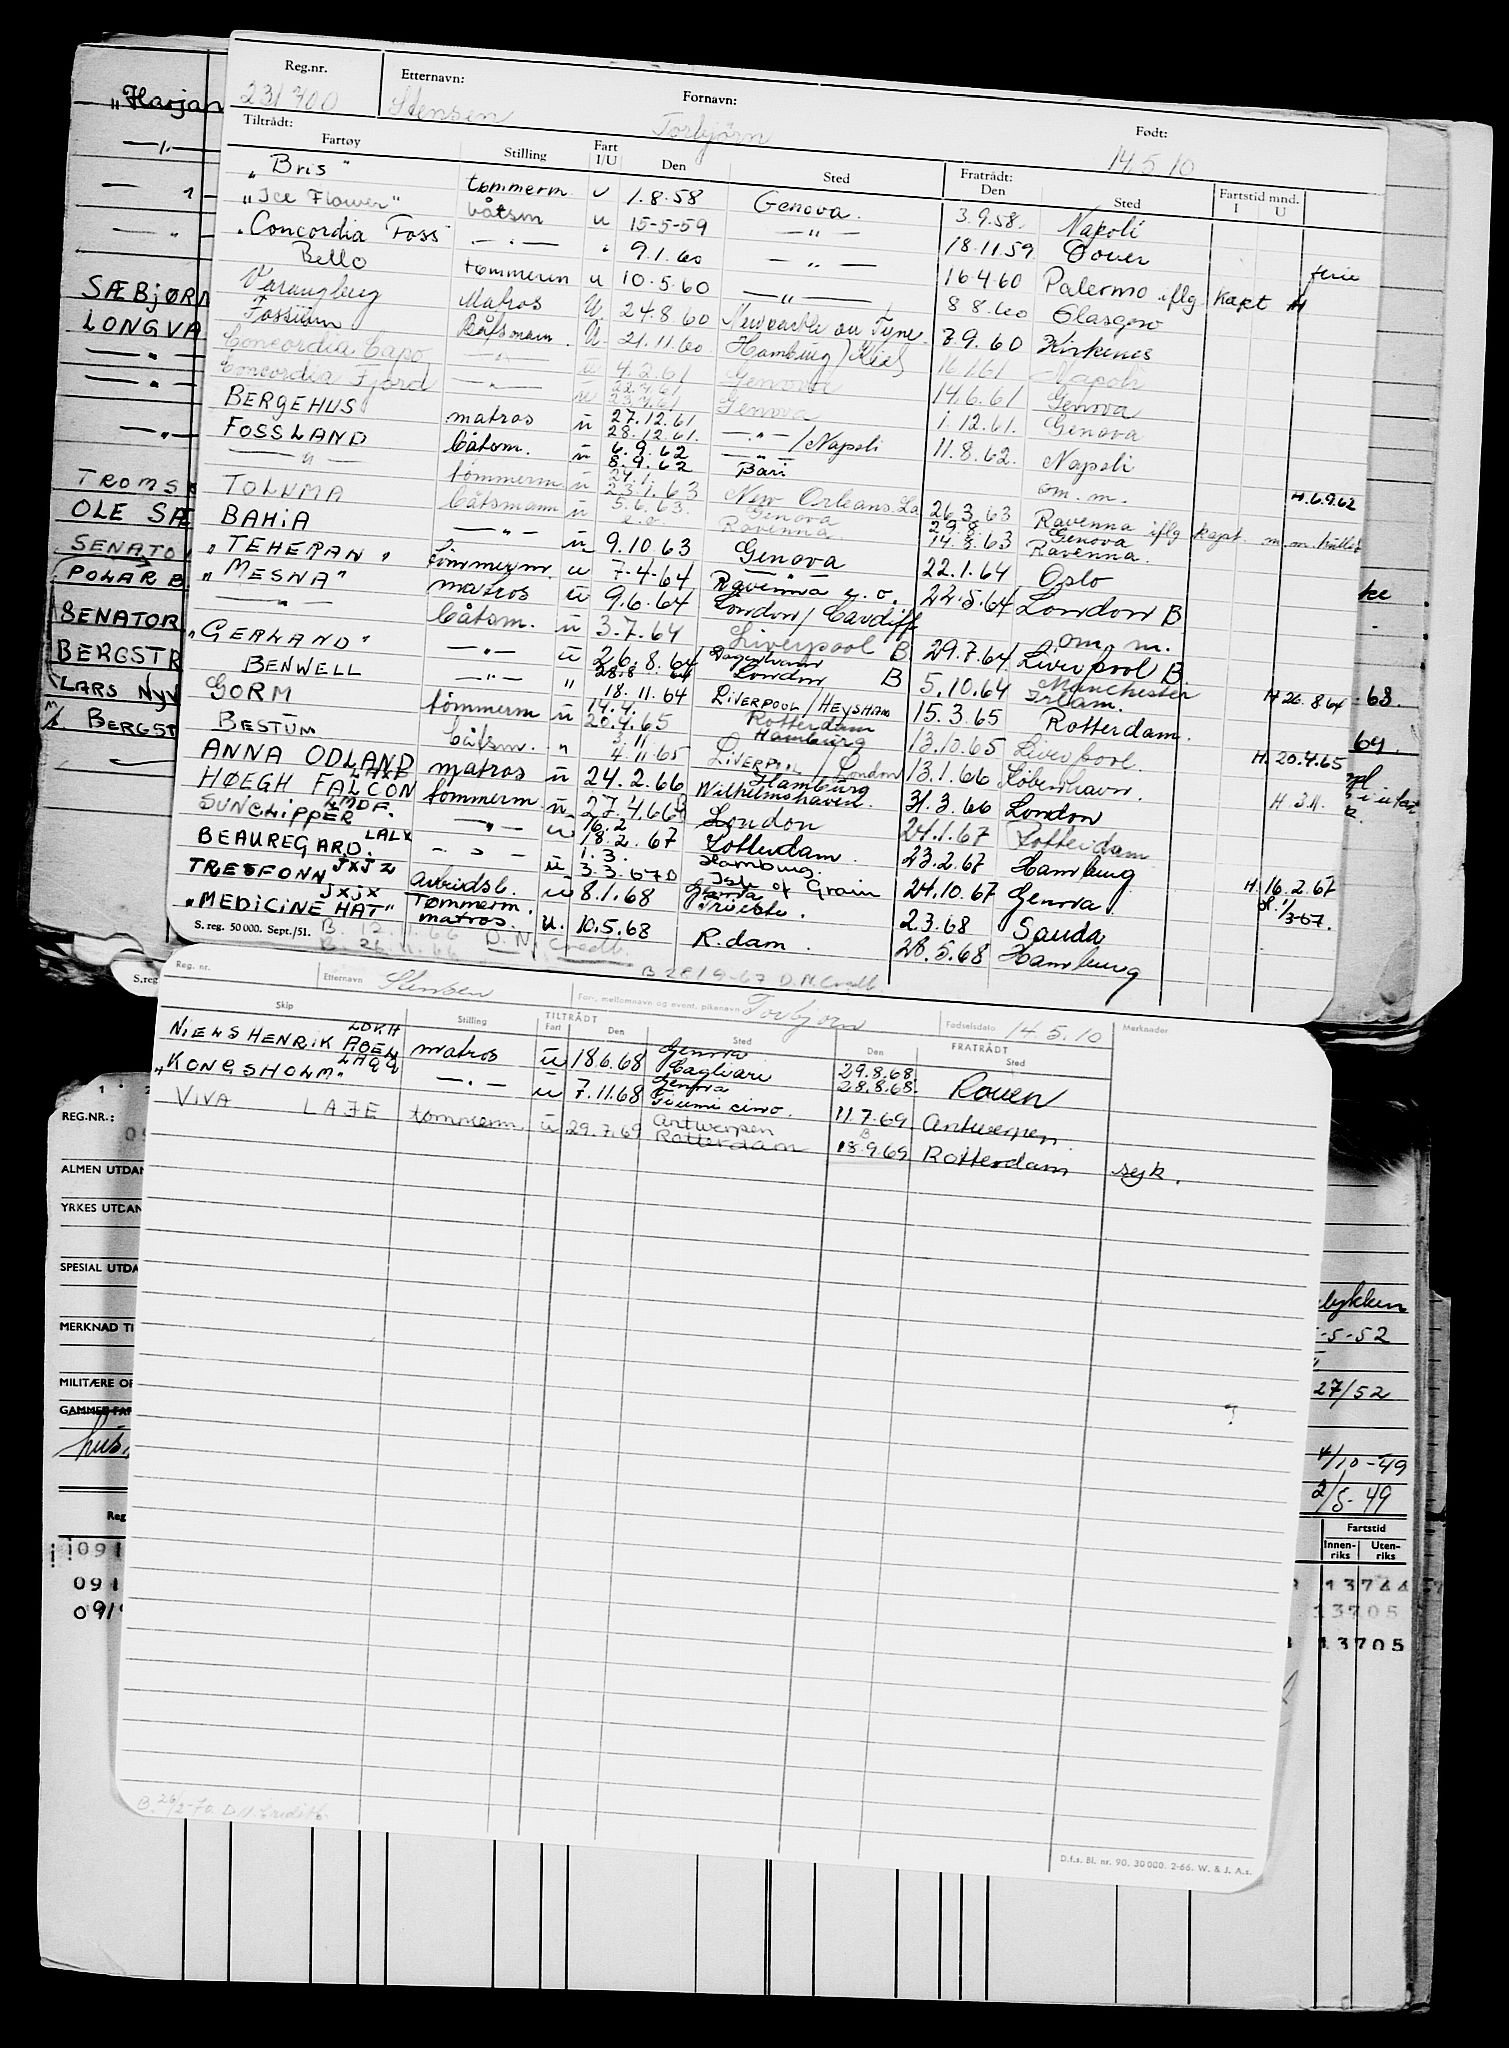 „Harjan
SÆBJØRN
LONGVA
TROMS
OLE SÆ
SENATO
POLAR B
BENATOR
BERGSTR
LARS NYV
M/S BERGST
Reg.nr. Etternavn: Fornavn: Født:
231700 Stensen Torbjørn 14.5.10
Tiltrådt: Fratrådt:
Fartøy Stilling Fart I/U Den Sted Den Sted Fartstid mnd. I U
„Bris" tømmerm. u 1.8.58 Genova. 3.9.58. Napoli
„Ice Flower" båtsm u 15-5-59 —"— 18.11.59 Dover
„Concordia Foss —"— " 9.1.60 —"— 16.4.60 Palermo iflg kapt ferie
Bello tømmerm u 10.5.60 —"— 8.8.60 Glasgow
Varangberg Matros U. 24.8.60 Newcastle on Tyne 3.9.60 Kirkenes
Fossum Båtsmann U. 21.11.60 Hamburg/Kiel 16.1.61 Napoli
Concordia Capo —"— u 4.2.61 Genova 14.6.61 Genova
Concordia Fjord —"— u 22.7.61 23.7.61 Genova 1.12.61. Genova
BERGEHUS matros u 27.12.61 28.12.61. —"—/Napoli 11.8.62. Napoli
FOSSLAND båtsm. u 6.9.62 8.9.62 —"— Bari om. m. H.6.9.62
—"— tømmerm. u 24.1. 23.1.63 New Orleans. La 26.3.63 Ravenna iflg kapt. m.m.
TOLUMA båtsmann u 5.6.63. Genova Ravenna 29.8. 14.8.63 Genova Ravenna.
BAHIA —"— u. 9.10.63 Genova 22.1.64 Oslo
„TEHERAN" tømmerm. u 7-4-64 —"— Ravenna e.o. 22.5.64 London B
„MESNA" matros u 9.6.64 London/Cardiff om. m.
—"— båtsm. u 3.7.64 Liverpool B 29.7.64 Liverpool B
„GERLAND" —"— u 26.8.64 28.8.64 Dagenham London B 5.10.64 Manchester Irlam. H 26.8.64
BENWELL —"— " 18.11.64 LIVERPOOL/HEYSHAM 15.3.65 Rotterdam.
GORM tømmerm u 14.4. 20.4.65 Rotterdam Hamburg 13.10.65 Liverpool. H. 20.4.65
BESTUM båtsm. " 3.11 4.11.65 LIVERPOOL/London 13.1.66 København. H 3.11.
ANNA ODLAND LAXF matros u 24.2.66 Hamburg Wilhelmshaven. 31.3.66 London
HØEGH FALCON LMDF. tømmerm. u 27.4.66 B London 24.1.67 Rotterdam
SUNCLIPPER LALX —"— u 16.2 18.2.67 Rotterdam. 23.2.67 Hamburg H 16.2.67
BEAUREGARD. JXJZ —"— u 1.3. 3.3.67 D Hamburg. Isle of Grain 24.10.67 Genova 1/3-67.
TRESFONN JXJX Tømmerm. u 8.1.68 Genova Trieste. 2.3.68 Sauda
„MEDICINE HAT" matros. u. 10.5.68 R.dam. 28.5.68 Hamburg
S. reg. 50 000. Sept./51.
B. 26.11.66 D.N. Credb.
B 28/9-67 D.N. Credb.
S.reg
Reg. nr. Etternavn Stensen For-, mellomnavn og event. pikenavn Torbjørn Fødselsdato 14.5.10 Merknader
Skip Stilling TILTRÅDT Fart Den Sted Den FRATRÅDT Sted
NIELS HENRIK ABEL LDVH matros u 18.6.68 Genova Cagliari 29.8.68. 28.8.68. Rouen
„KONGSHOLM" —"— u 7.11.68 Genova Fiumicino. 11.7.69 Antwerpen
VIVA LAJE tømmerm. u 29.7.69 Antwerpen Rotterdam B 18.9.69 Rotterdam syk.
B. 26/2-70. D.N. Creditb.
D.f.s. Bl. nr. 90. 30 000. 2-66. W. & J. A.s.
REG.NR.:
ALMEN UTDAN
YRKES UTDAN
SPESIAL UTDA
MERKNAD TI
MILITÆRE OP
Reg
091
091
-5-52
27/52
4/10-49
2/5-49
Fartstid
Innen- riks Uten- riks
13744
13705
13705